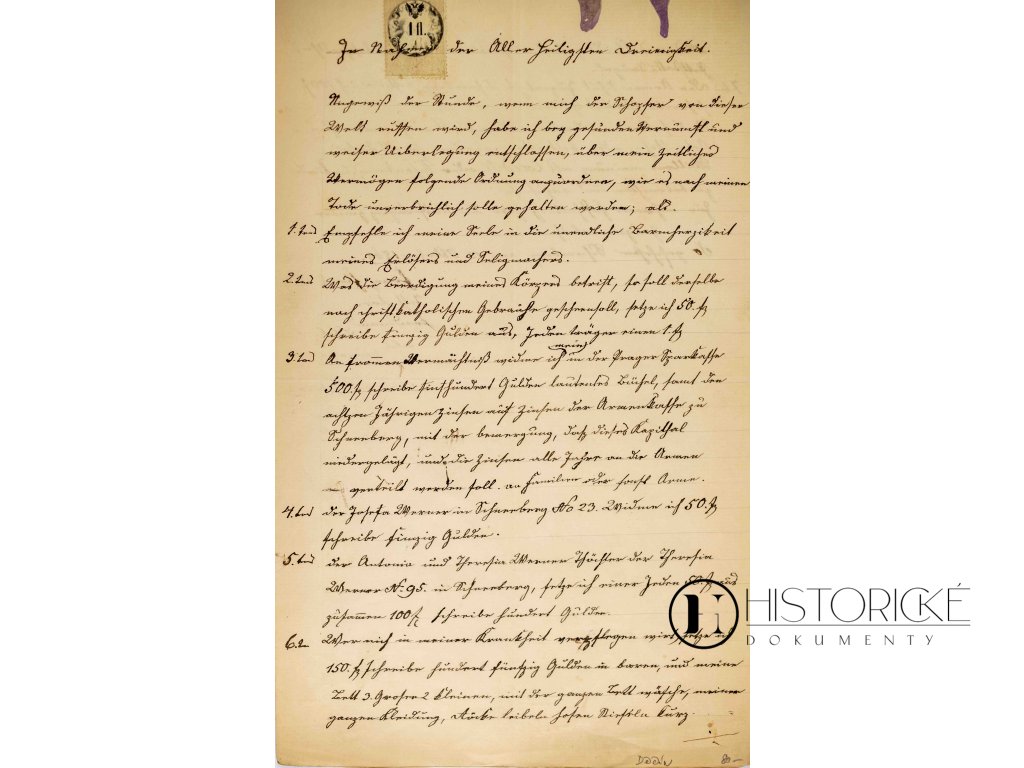 1 fl.
Im Nahmen der Aller heiligsten Dreieinigkeit.
Ungewiß der Stunde, wenn mich der Schöpfer von dieser
Welt ruffen wird, habe ich bey gesunden Vernunft und
weiser Uiberlegung entschlossen, über mein zeitliches
Vermögen folgende Ordnung anzuordnen, wie es nach meinen
Tode unverbrüchlich solle gehalten werden; als.
1.tens Empfehle ich meine Seele in die unendliche Barmherzikeit
meines Erlösers und Seligmachers.
2.tens Was die Beerdigung meines Körpers betrift, so soll derselbe
nach christkatholischen Gebrauche geschehen soll, setze ich 50. f
schreibe finzig Gulden aus, Jeden träger einen 1. f
3.tens An frommen Vermächtniß widme ich mein in der Prager Sparkasse
500 f schreibe fünfhundert Gulden lautentes Büchel, samt den
achtzen Jährigen Zinsen auf Zinsen der Armenkasse zu
Schneeberg, mit der bemergung, daß dieses Kapithal
niedergelägt, und die Zinsen alle Jahre an die Armen
verteilt werden soll. an Familien oder sonst Arme.
4.tens der Josefa Werner in Schneeberg No 23. Widme ich 50. f
schreibe finzig Gulden.
5.tens der Antonia und Theresia Werner Thöchter der Theresia
Werner No. 95. in Schneeberg, setze ich einer Jeden 50. f aus
zusammen 100 f schreibe hundert Gulden.
6.tens Wer mich in meiner Krankheit verpflegen wirt, setze ich
150. f schreibe hundert fünfzig Gulden in baren, und meine
Bett 3. Groser 2 kleinen, mit der ganzen Bett wäsche, meiner
ganzen Kleidung, Röcke leibeln hosen Stiefeln kurz
80—
HISTORICKÉ
DOKUMENTY